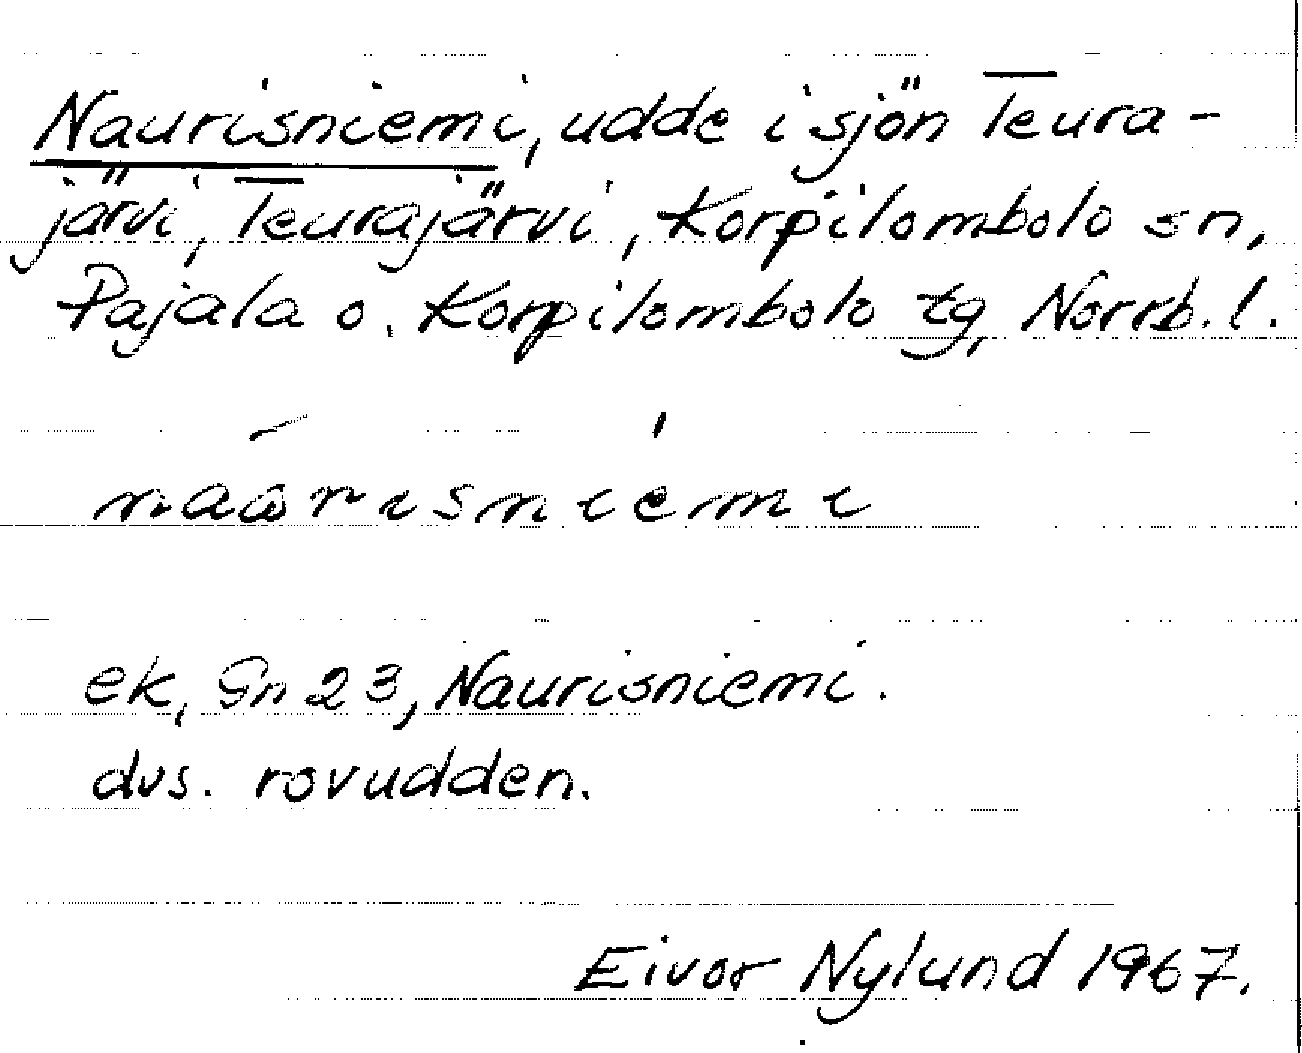 Naurisniemi, udde i sjön Teura-
järvi, Teurajärvi, Korpilombolo sn,
Pajala o. Korpilombolo tg, Norrb. l.
naȯrisniemi
ek, Gn 23, Naurisniemi.
dvs. rovudden.
Eivor Nylund 1967.